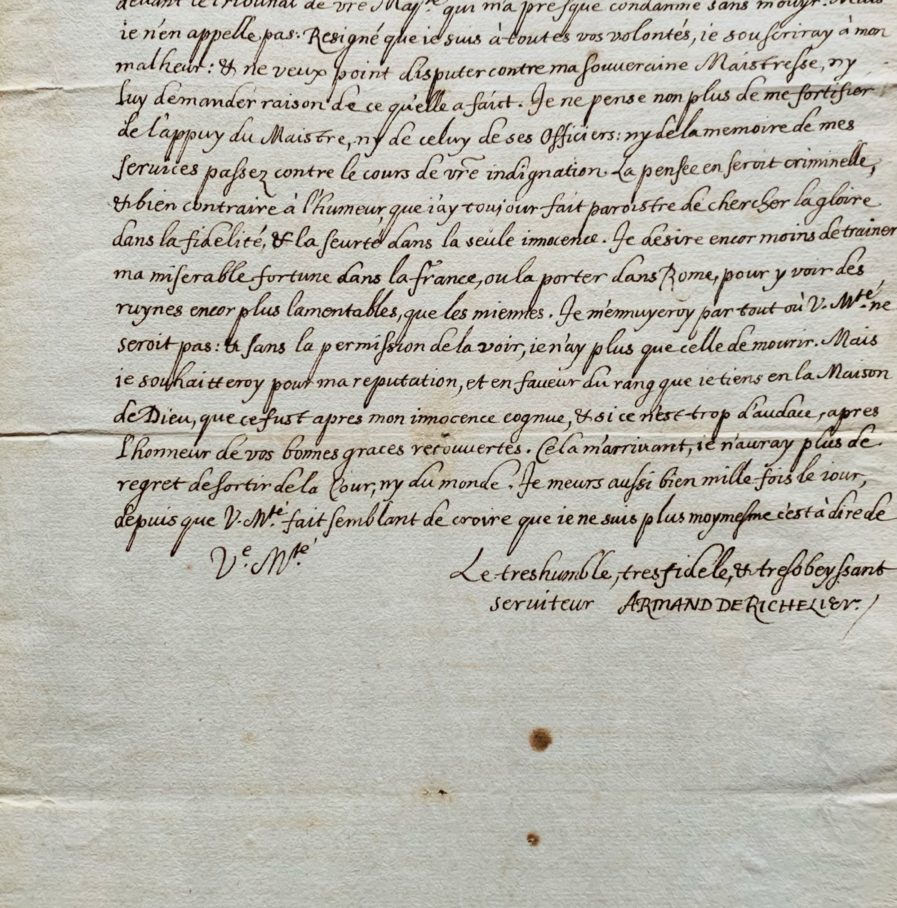 devant le Tribunal de vrē Maj.té qui m'a presque condamné sans m'ouyr. Mais
ie n'en appelle pas. Resigné que ie suis à toutes vos volontés, ie souscriray à mon
malheur: & ne veux point disputer contre ma souveraine Maistresse, ny
luy demander raison de ce qu'elle a faict. Je ne pense non plus de me fortifier
de l'appuy du Maistre, ny de celuy de ses Officiers: ny de la memoire de mes
services passez contre le cours de vrē indignation. La pensée en seroit criminelle,
& bien contraire à l'humeur que i'ay toujour fait paroistre de chercher la gloire
dans la fidelité, & la seurté dans la seule innocence. Je desire encor moins de trainer
ma miserable fortune dans la france, ou la porter dans Rome, pour y voir des
ruynes encor plus lamentables, que les miennes. Je m'ennuyeroy par tout où V. M.té ne
seroit pas: & sans la permission de la voir, ie n'ay plus que celle de mourir. Mais
ie souhaitteroy pour ma reputation, et en faveur du rang que ie tiens en la Maison
de Dieu, que ce fust apres mon innocence cognue, & si ce n'est trop d'audace, apres
l'honneur de vos bonnes graces recouvertes. Cela m'arrivant, ie n'auray plus de
regret de sortir de la Cour, ny du monde. Je meurs aussi bien mille fois le iour,
depuis que V. M.té fait semblant de croire que ie ne suis plus moymesme c'est à dire de
V.e M.té
Le treshumble, tresfidele, & tresobeyssant
serviteur ARMAND DE RICHELIEV.